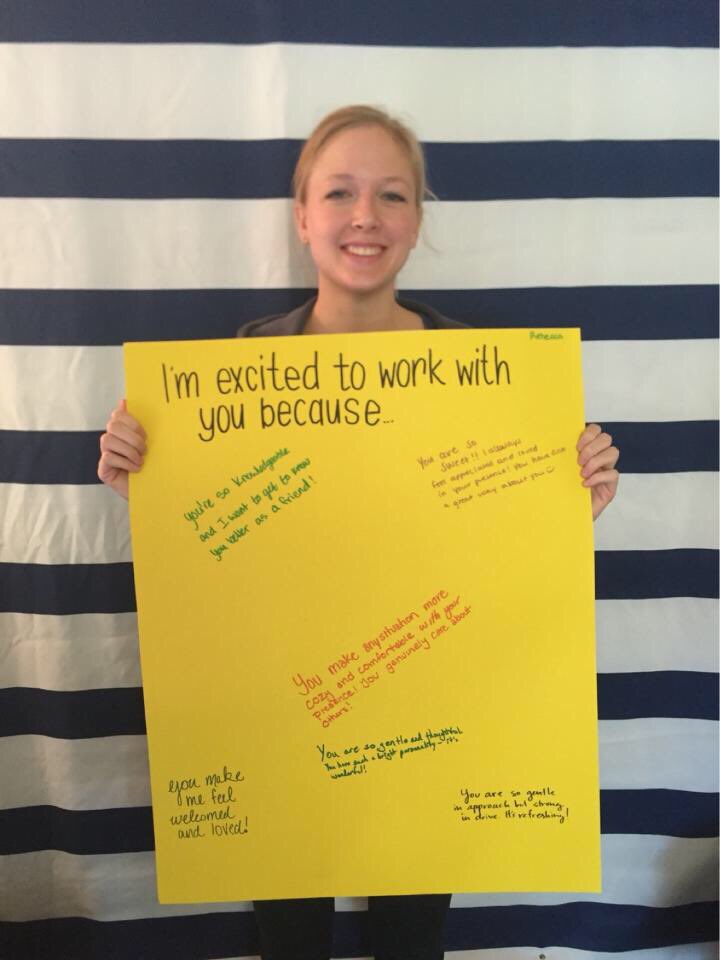 Rebecca
I'm excited to work with
you because...
You're so knowledgeable
and I want to get to know
you better as a friend!
You are so
sweet!! I always
feel appreciated and loved
in your presence! You have such
a great way about you
You make any situation more
cozy and comfortable with your
presence! You genuinely care about
others!
You are so gentle and thoughtful.
You have such a bright personality - it's
wonderful!
you make
me feel
welcomed
and loved!
You are so gentle
in approach but strong
in drive. It's refreshing!